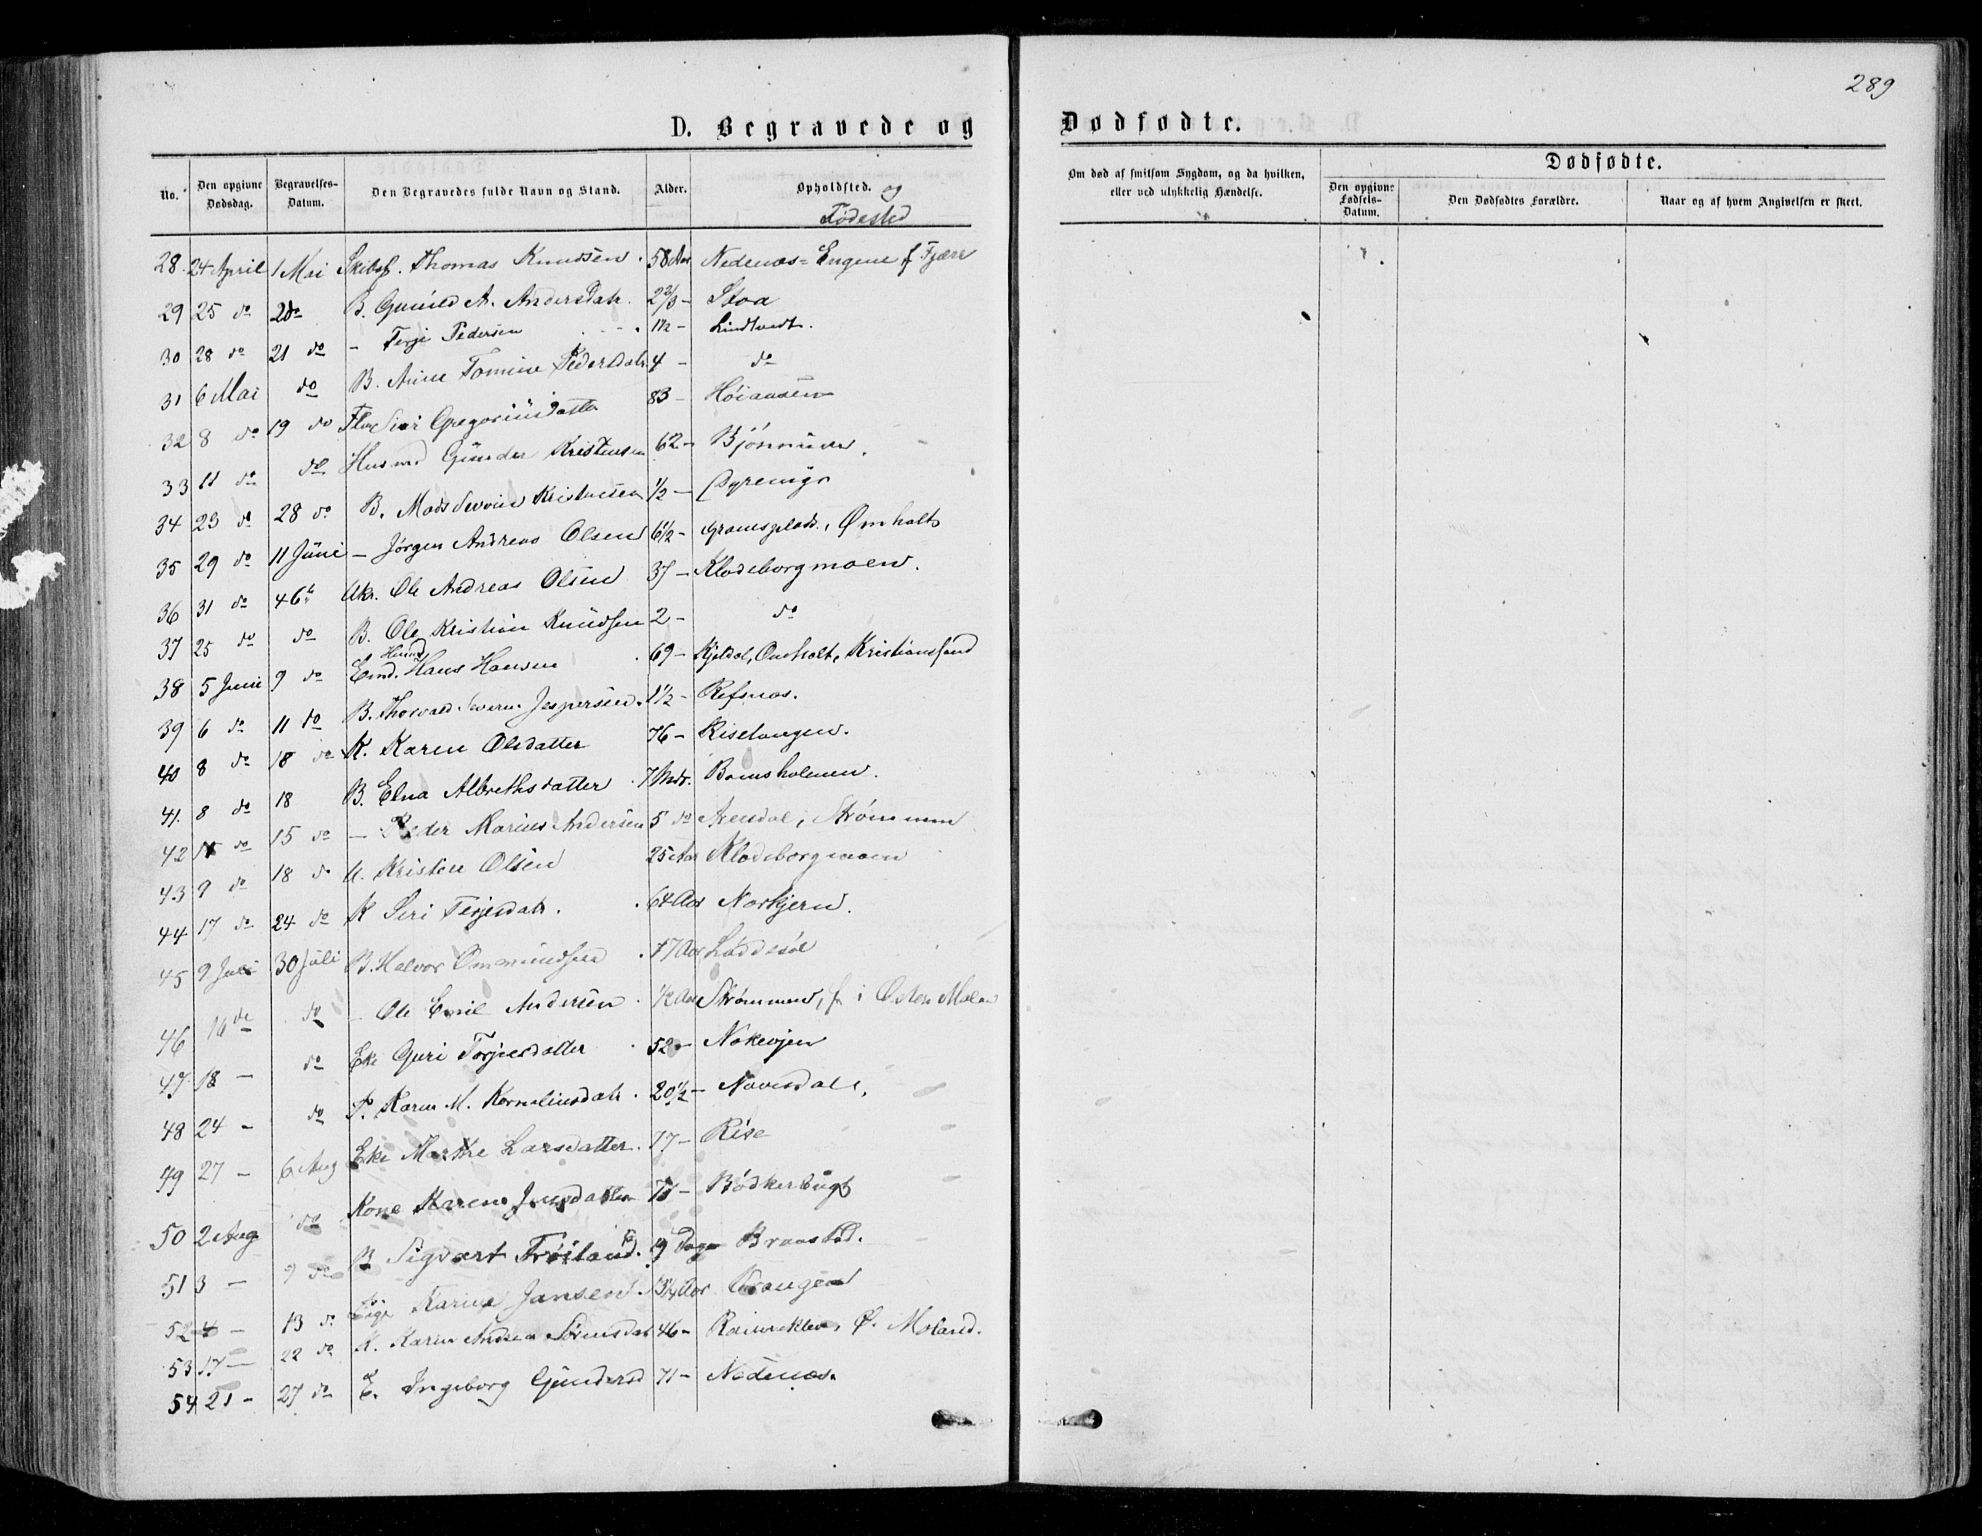 289
D. Begravede og
Dødfødte.
No.
Den opgivne Dødsdag.
Begravelses-Datum.
Den Begravedes fulde Navn og Stand.
Alder.
Opholdsted. og Fødested
Om død af smitsom Sygdom, og da hvilken, eller ved ulykkelig Hændelse.
Dødfødte.
Den opgivne Fødsels-Datum.
Den Dødfødtes Forældre.
Naar og af hvem Angivelsen er skeet.
28 24 April 1 Mai Thomas Knudsen 58 Aar Nedenæs-Engene f Fjære
29 25 do B. Gunild A. Andersdatr. 2 2/3 - Stoa
30 28 do 21 do - Terje Pedersen 1 1/2 - Lindtvedt.
31 6 Mai do B. Anne Tomine Pedersdatr. 4 - do
32 8 do 19 do Siri Gregoriusdatter 83 -
33 11 do do Husmd Gunder Kristensen 62 -
34 23 do 28 do B. Mads 1/2 -
35 29 do 11 Juni - Jørgen Andreas Olsen 6 1/2 - Omholt
36 31 do Ole Andreas Olsen 37 - Klodeborgmoen.
37 25 do do B. Ole Kristian Knudsen 2 - do
38 5 Juni 9 do Husmd Hans Hansen 69 - Omholt, Kristianssand
39 6 do 11 do B. Thorvald Severin Jespersen 1 1/2 - Refsnæs.
40 8 do 18 do K. Karen Olsdatter 76 - Riselangen.
41. 8 do 18 B. Elna Albrethsdatter 7 Mdr. Bomsholmen.
42 do 15 do - Peder Marius Andersen 5 do Arendal, Strømmen
43 9 do 18 do U. Kristen Olsen 25 Aar Klodeborgmoen
44 17 do 24 do K Siri Terjesdatr. 64 Aar Norkjern.
45 9 Juli 30 Juli B. Halvor Ommundsen 17 Aar Løddesøl
46 16 do - Ole Emil Andersen 1/2 Aar Strømmen, f. i Østen Molan
47 18 - do Eke Guri Torjusdatter 52 -
48 24 - do P. Karen M. Korneliusdatr. 20 1/2 -
49 27 - 6 Aug Eke Marthe Larsdatter. 77 - Rise
50 2 Aug do Kone Karen Jensdatter Bødkerbugt
51 3 - 9 do B Sigvart Frøiland. 19 Dage Braastad.
52 4 - 13 do Pige Karine Jansen Aar Vrangen
53 17 - 22 do K. Karen Andrea Sørensdatr 46 - Ø. Moland.
54 21 - 27 do E. Ingeborg Gundersd 71 - Nedenæs.